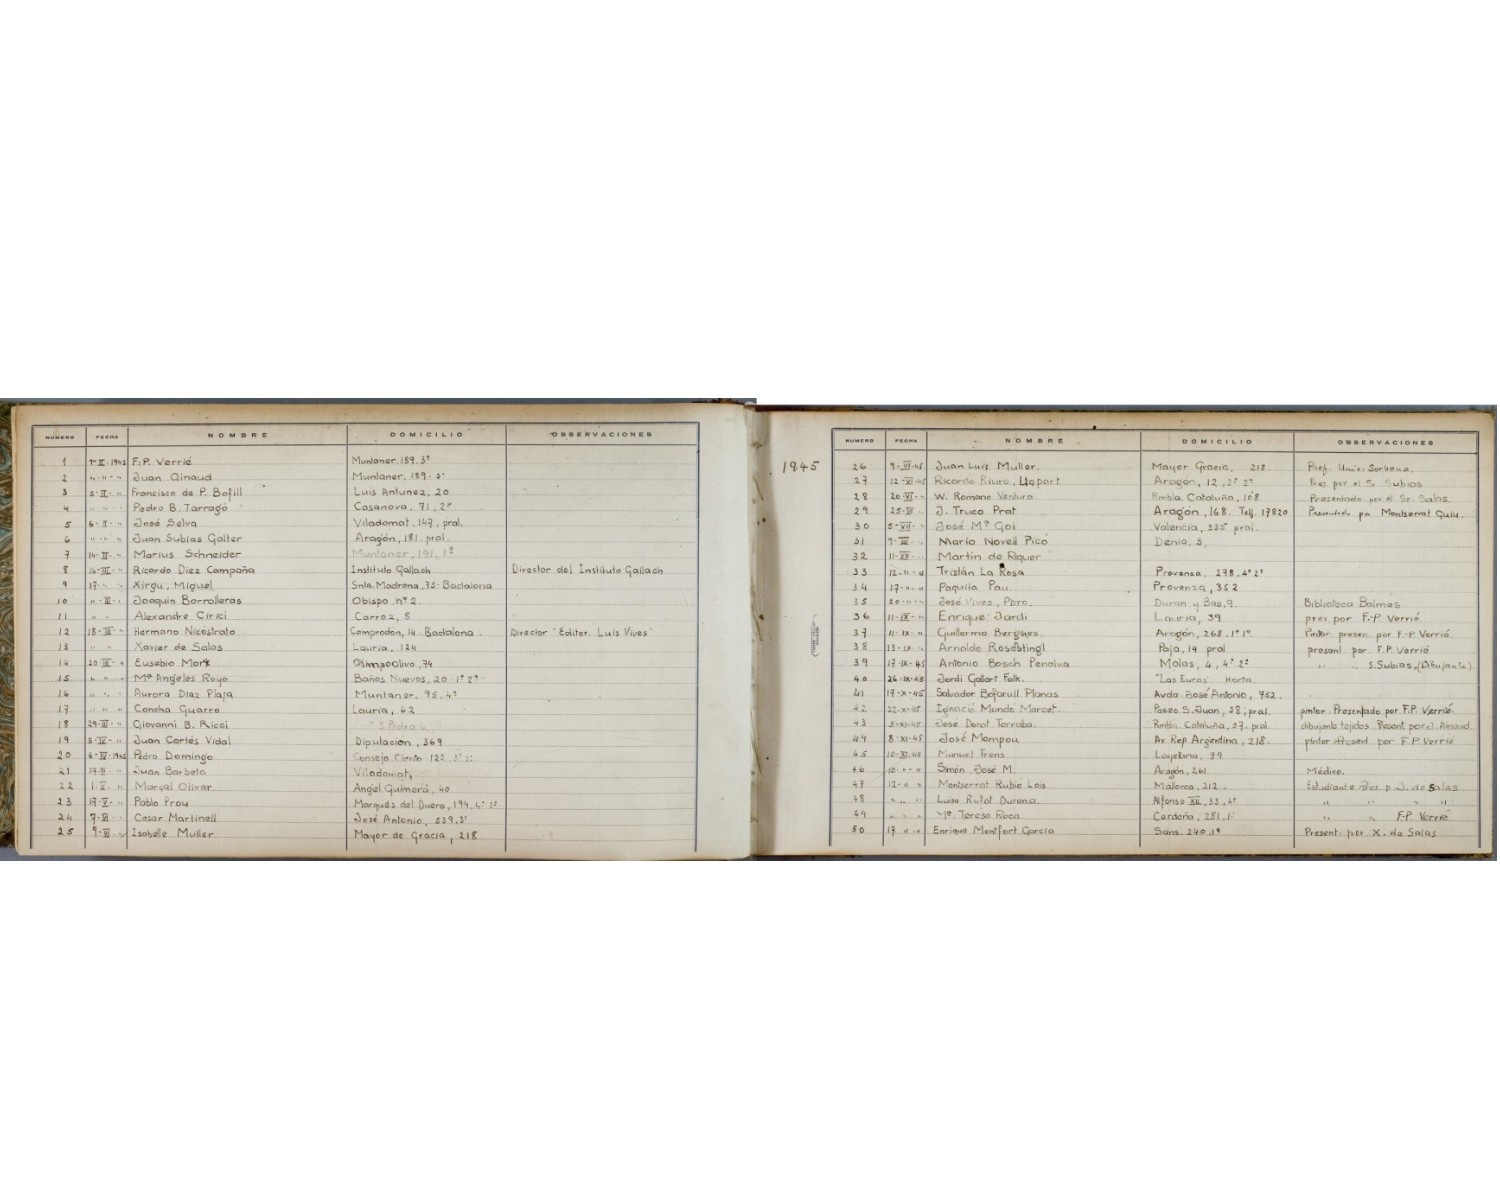 NUMERO FECHA NOMBRE DOMICILIO OBSERVACIONES
1 1-II-1945 F.-P. Verrié Muntaner. 189. 3º
2 " " " Juan Ainaud Muntaner, 189. 3º
3 5-II- " Francisco de P. Bofill Luis Antunez, 20
4 " " " Pedro B. Tarragó Casanova, 71, 2º
5 6-II- " José Selva Viladomat, 147, pral.
6 " " " Juan Subías Galter Aragón, 181. pral.
7 14-II- " Marius Schneider Muntaner, 191, 1º
8 16-III- " Ricardo Diez Campaña Instituto Gallach Director del Instituto Gallach
9 17- " " Xirgu, Miguel Snta. Madrona, 73- Badalona
10 " -III- " Joaquin Borralleras Obispo nº 2
11 " " Alexandre Cirici Carroz, 8
12 18-III- " Hermano Nicostrato Comprodon, 14. Badalona. Director "Editor. Luis Vives"
13 " " Xavier de Salas Lauria, 124
14 20-III- " Eusebio Mork Olimpo Olivo, 74
15 " " " Mª Angeles Royo Baños Nuevos, 20-1º 2ª
16 " " " Aurora Diaz Plaja Muntaner, 95. 4º
17 " " " Concha Guarro Lauria, 62
18 29-III- " Giovanni B. Ricci S. Pedro
19 5-IV- " Juan Cortés Vidal Diputación, 369
20 6-IV-1945 Pedro Domingo Consejo Ciento 122. 2º 2ª
21 " Juan Barbeta Viladomat,
22 1-V- " Marçal Olivar Angel Guimerá, 40
23 17-V- " Pablo Prou Marqués del Duero, 194, 4º 1ª
24 7-VI- " Cesar Martinell José Antonio, 539. 3º
25 9-VI- " Isabele Muller Mayor de Gracia, 218
1945
NUMERO FECHA NOMBRE DOMICILIO OBSERVACIONES
26 9-VI-45 Juan Luis Muller. Mayor Gracia, 218. Prof. Univ. Sorbona.
27 12-VI-45 Ricardo Riura, Llopart Aragón, 12, 2º 2ª Pres. por el Sr. Subias
28 20-VI- " W. Romano Ventura Rmbla. Cataluña, 108 Presentado por el Sr. Salas.
29 25-VI- " J. Trueo Prat Aragón, 168. Telf. 17820 Presentado por Montserrat Guiu.
30 5-VII- " José Mª Goi Valencia, 335 pral.
31 7-VII- " Mario Novell Picó Denia, 3,
32 11-VII- Martín de Riquer
33 12- " - " Tristán La Rosa Provensa, 278. 4º 2ª
34 17- " - " Paquita Pau. Provenza, 352
35 20- " - " José Vives, Pbro. Duran y Bas, 9. Biblioteca Balmes
36 11-IX- " Enrique Jardi Lauria, 39 pres por F.-P Verrié
37 11-IX- " Guillermo Bergnes. Aragón, 268. 1º 1ª Pintor. presen. por F.-P Verrié.
38 13-IX- " Arnoldo Rosenstingl Paja, 14 pral present. por. F.P. Verrié
39 17-IX-45 Antonio Bosch Penalva Molas, 4, 4º 2ª " " S. Subias, (Dibujante)
40 26-IX-45 Jordi Gallart Folk. "Las Euras" Horta.
41 17-X-45 Salvador Bofarull Planas Avda. José Antonio, 762.
42 22-X-45 Ignació Mundó Marcet. Paseo S. Juan, 38, pral. pintor. Presentado por F.P. Verrié.
43 3-XI-45 José Dorat Torraba. Rmbla. Cataluña, 57. pral. dibujante tejidos. Present por J. Ainaud.
44 8-XI-45 José Mompou Av. Rep. Argentina, 218. pintor Present. por F.P Verrié
45 10-XI-45 Manuel Trens Layetana, 79
46 10- " " Simón José M. Aragón, 261 Médico.
47 12- " " Montserrat Rubió Lois Mallorca, 212. Estudiante Pres. p. J. de Salas
48 " " " Luisa Rufat Durana. Alfonso XII, 33, 4º " " "
49 " " " Mª Teresa Roca Cerdeña, 281, 1º " " F-P Verrié
50 17 " " Enrique Montfort Garcia Sans. 240, 1º Present. por X. de Salas